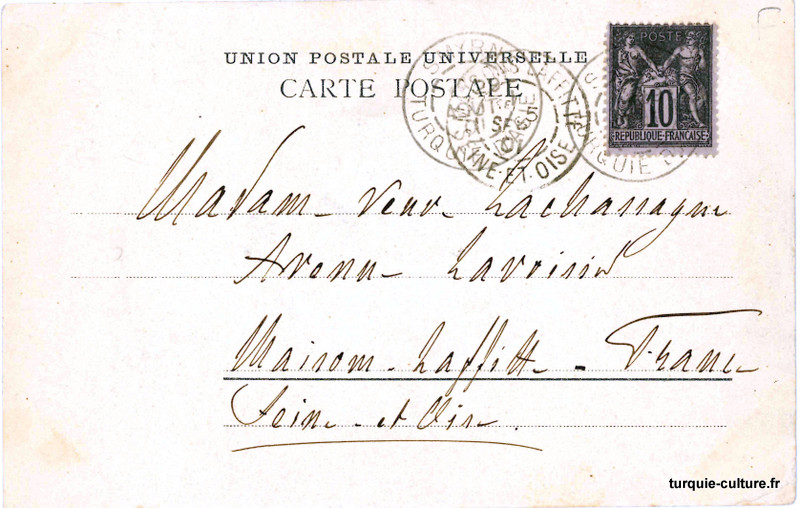 UNION POSTALE UNIVERSELLE
CARTE POSTALE
POSTE
10
REPUBLIQUE FRANÇAISE
SMYRNE
TURQUIE
LAFFITTE
SEINE-ET-OISE
TURQUIE
Madame Veuve Lachassagne
Avenue Lavoisier
Maison-Laffitte - France
Seine-et-Oise
turquie-culture.fr